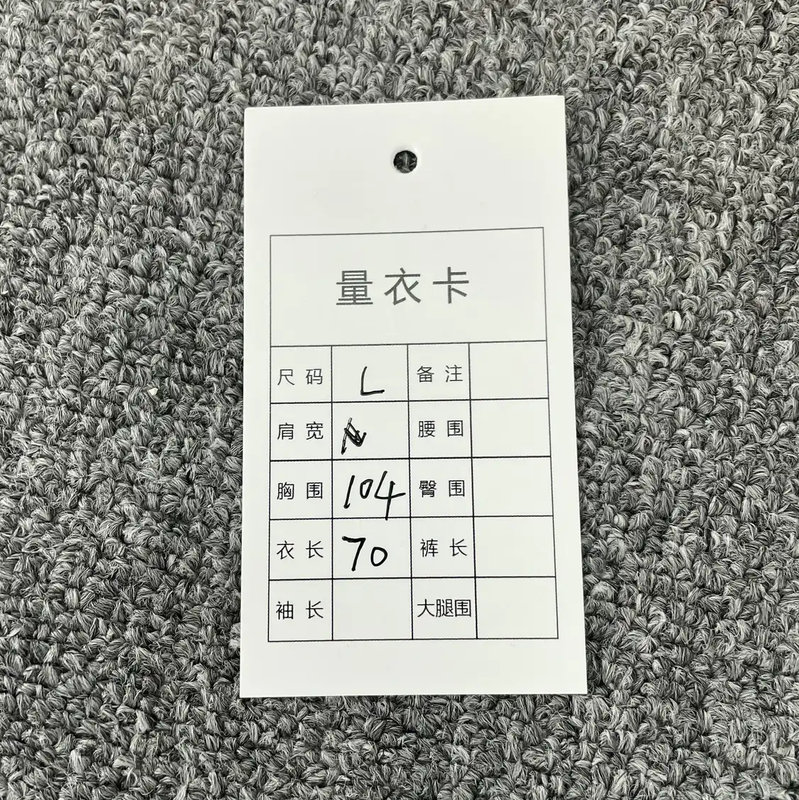 量衣卡
尺码 L 备注
肩宽 腰围
胸围 104 臀围
衣长 70 裤长
袖长 大腿围